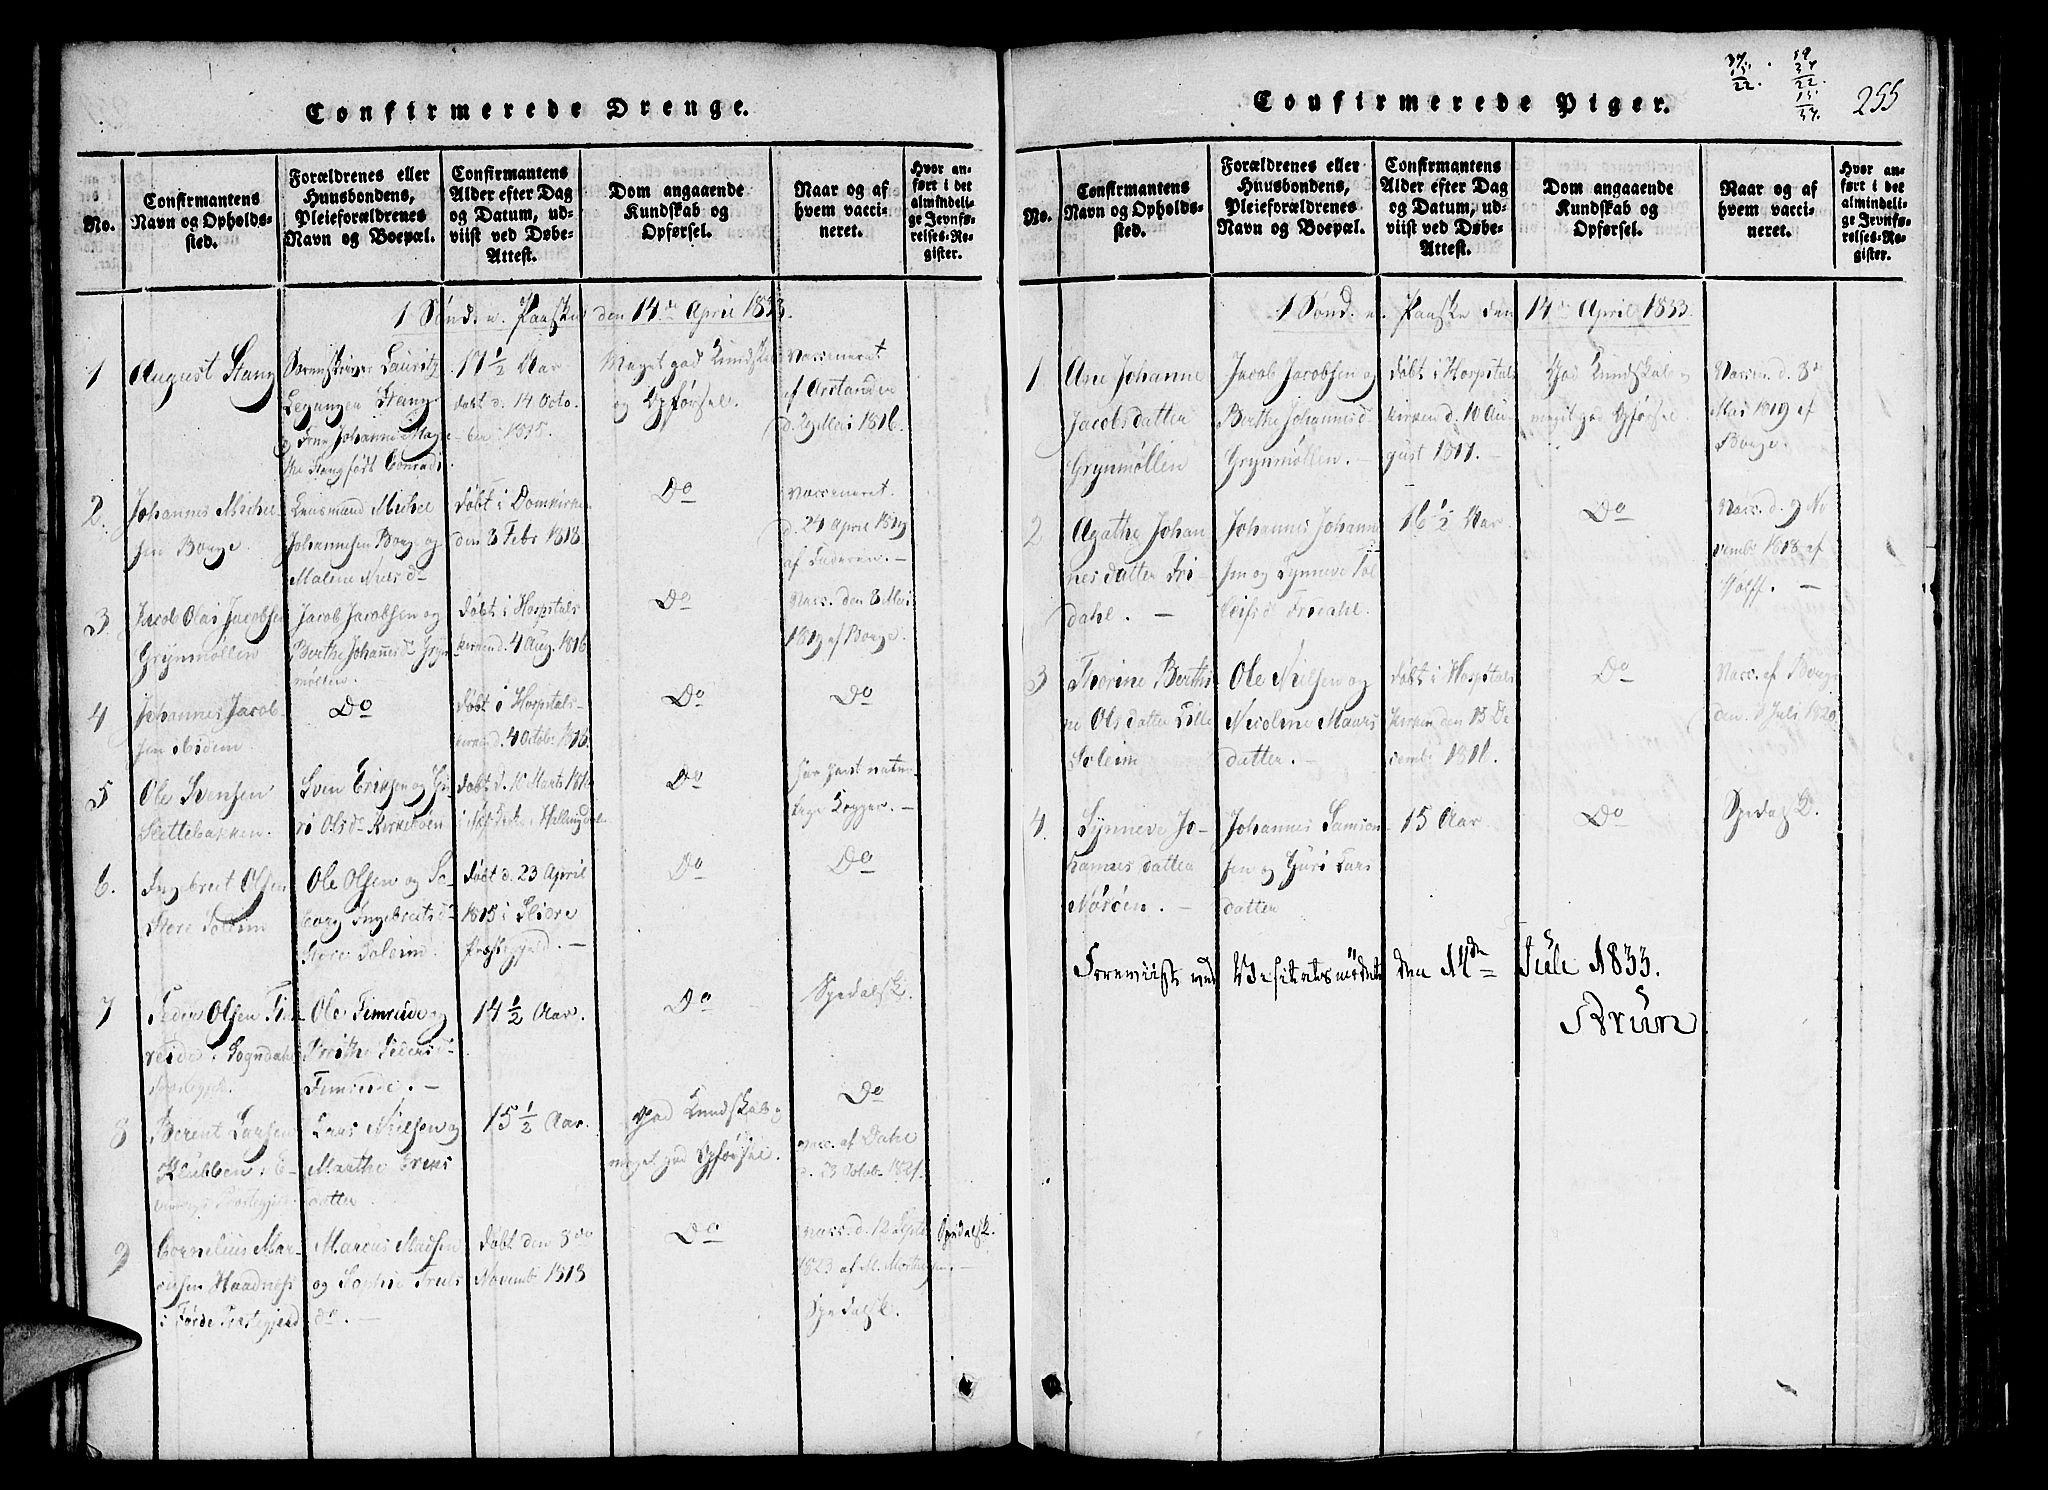 Confirmerede Drenge.
No.
Confirmantens
Navn og Opholds-
sted.
Forældrenes eller
Huusbondens,
Pleieforældrenes
Navn og Boepæl.
Confirmantens
Alder efter Dag
og Datum, ud-
viist ved Døbe-
Attest.
Dom angaaende
Kundskab og
Opførsel.
Naar og af
hvem vacci-
neret.
Hvor an-
ført i det
almindeli-
ge Jevnfø-
relses-Re-
gister.
1 Sønd. e. Paaske den 14de April 1833.
1
August Stang
Sorenskriver Lauritz
Leganger Stang
og Fru Johanne Magre-
the Stang født Conradi
17 1/2 Aar
døbt d. 14 Octo-
ber 1815.
Meget god Kundskab
og Opførsel.
Vaccineret
d. 29 Mai 1816.
2.
Johannes Michel-
sen Borge.
Lensmand Michel
Johannesen Borge og
Malene Nielsd-
døbt i Domkirken
den 8 Febr 1818
Do
Vaccineret
d. 24 April 1819
af Faderen. -
3
Jacob Olai Jacobsen
Grynmøllen
Jacob Jacobsen og
Berthe Johannsd- Gryn-
møllen.
døbt i Hospitals
kirken d. 4 Aug. 1816
Do
Vacc. den 8 Mai
1819 af Borge.
4
Johannes Jacob-
sen ibidem
Do
døbt i Hospitals-
kirken d. 4 October 1816.
Do
Do
5
Ole Svensen
Slettebakken.
Sven Erichsen og Gu-
ri Olsd- Kirkebøen
døbt d. 10 Marts 1816
Do
har havt natur-
lige Kopper. -
6.
Ingebret Olsen
Store Soleim
Ole Olsen og
Ingebretsd-
Store Soleim.
døbt d. 23 April
1815 i Slidre
Præstegjeld. -
Do
Do
7
Peder Olsen Fim-
reide i Sogndahls
Præstegjeld.
Ole Fimreide og
Brithe Pedersd-
Fimreide. -
14 1/2 Aar.
Do
Spedalsk.
8
Berent Larsen
Klubben i E-
vindvigs Præstegjeld.
Lars Nielsen og
Marthe
datter
15 1/2 Aar.
God Kundskab og
meget god Opførsel.
Do
Vacc. af Dahl
d. 23 Octob- 1821.
9
Cornelius Mar-
cusen Haadnæss
i Førde Præstegjeld
Marcus Madsen
og Sophie Truls
do. -
døbt den 8de
Novemb 1818
Do
Vacc. d. 12 Septb
1823 af M. Mortensen. -
Spedalsk.
Spedalsk.
Confirmerede Piger.
37.
15
22.
59
37
22.
15
37.
255
No.
Confirmantens
Navn og Opholds-
sted.
Forældrenes eller
Huusbondens,
Pleieforældrenes
Navn og Boepæl.
Confirmantens
Alder efter Dag
og Datum, ud-
viist ved Døbe-
Attest.
Dom angaaende
Kundskab og
Opførsel.
Naar og af
hvem vacci-
neret.
Hvor an-
ført i det
almindeli-
ge Jevnfø-
relses-Re-
gister.
1 Sønd. e. Paaske den 14de April 1833.
1
Ane Johanne
Jacobsdatter
Grynmøllen
Jacob Jacobsen og
Berthe Johannesd
Grynmøllen. -
døbt i Hospitals
kirken d. 10 Au-
gust 1817. -
God Kundskab og
meget god Opførsel
Vaccn. d. 8de
Mai 1819 af
Borge.
2
Agathe Johan
nesdatter Fri-
dahl. -
Johannes Johanne
sen og Synneve Tol
leifsd Fridahl.
16 1/2 Aar.
Do
Vacc. d. 9 No
vembr 1818 af
Wolff. -
3
Thorine Berthi-
ne Olsdatter Lille
Soleim
Ole Nielsen og
Nicoline Maars
datter. -
døbt i Hospitals
kirken den 15 De
cembr 1816.
Do
Vacc. af Borge
den 1 Juli 1820
4.
Synneve Jo-
hannes datter
Nøreim. -
Johannes Samson-
sen og Guri Lars
datter
15 Aar
Do
Spedalsk.
Foreviist ved Visitatsmødet den 14de Juli 1833.
Brun